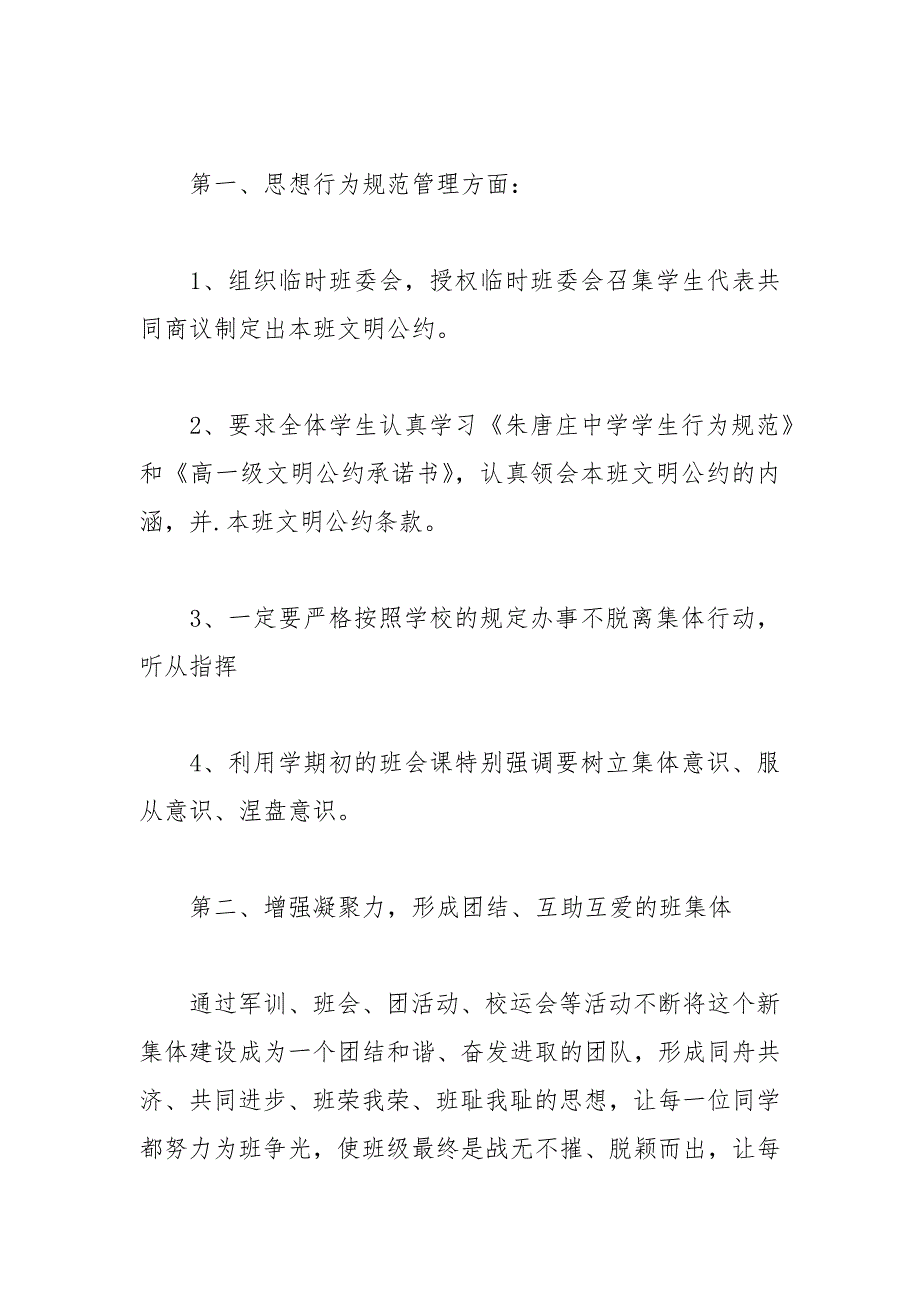 第一、思想行为规范管理方面：
1、组织临时班委会，授权临时班委会召集学生代表共
同商议制定出本班文明公约。
2、要求全体学生认真学习《朱唐庄中学学生行为规范》
和《高一级文明公约承诺书》，认真领会本班文明公约的内
涵，并.本班文明公约条款。
3、一定要严格按照学校的规定办事不脱离集体行动，
听从指挥
4、利用学期初的班会课特别强调要树立集体意识、服
从意识、涅盘意识。
第二、增强凝聚力，形成团结、互助互爱的班集体
通过军训、班会、团活动、校运会等活动不断将这个新
集体建设成为一个团结和谐、奋发进取的团队，形成同舟共
济、共同进步、班荣我荣、班耻我耻的思想，让每一位同学
都努力为班争光，使班级最终是战无不摧、脱颖而出，让每